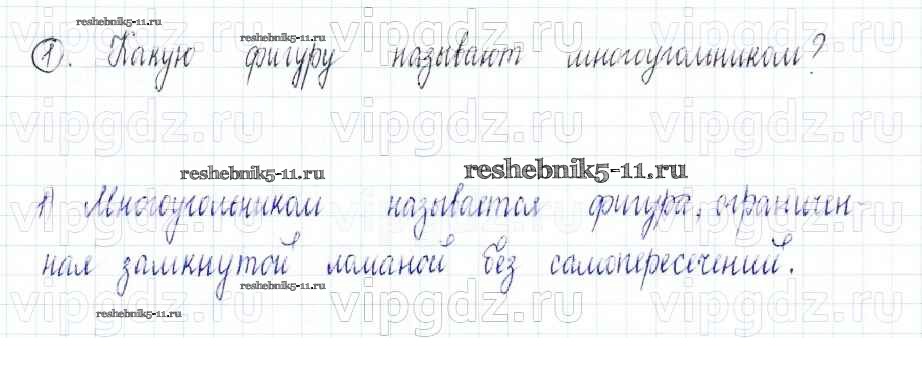 reshebnik5-11.ru
vipgdz.ru vipgdz.ru vipgdz.ru
reshebnik5-11.ru
1. Какую фигуру называют многоугольником?
vipgdz.ru vipgdz.ru vipgdz.ru
reshebnik5-11.ru reshebnik5-11.ru
1) Многоугольником называется фигура, ограничен-
vipgdz.ru vipgdz.ru vipgdz.ru
ная замкнутой ломаной без самопересечений.
reshebnik5-11.ru
reshebnik5-11.ru
vipgdz.ru vipgdz.ru vipgdz.ru